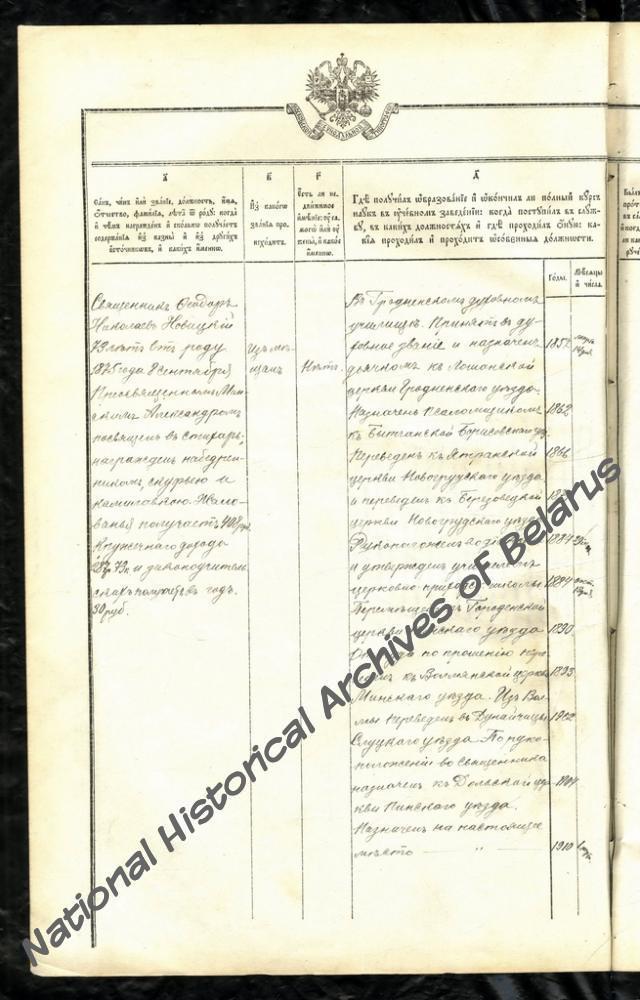 а҃
Санъ, чинъ или званіе, должность, имя,
отчество, фамилія, лѣта ѿ роду; когда
и чѣмъ награжденъ и сколько получаетъ
содержанія изъ казны и изъ другихъ
источниковъ, и какихъ именно.
в҃
Изъ какого
званія про-
исходитъ.
г҃
Есть ли не-
движимое
имѣніе: у са-
мого или у
жены, и какое
именно.
д҃
Гдѣ получилъ ѡбразованіе и ѡкончилъ ли полный курсъ
наукъ въ учебномъ заведеніи: когда поступилъ въ служ-
бу, въ какихъ должностяхъ и гдѣ проходилъ ѻную: ка-
кія проходилъ и проходитъ ѡсобенныя должности.
Годы.
Мѣсяцы
и числа.
Священникъ Ѳеодоръ
Николаевъ Новицкій
73 лѣтъ отъ роду
1875 года 8 Сентября
Преосвященнымъ Мин-
скимъ Александромъ
посвященъ въ стихарь,
награжденъ набедрен-
никомъ, скуфьею и
камилавкою. Жало-
ванья получаетъ 408 руб.
Кружечнаго дохода
28 р. 73 к. и
въ годъ
30 руб.
Изъ мѣ-
щанъ
Нѣтъ.
Въ Гродненскомъ духовномъ
училищѣ. Принятъ въ ду-
ховное званіе и назначенъ 1857
дьячкомъ къ Лошанской
церкви Гродненскаго уѣзда.
Назначенъ псаломщикомъ 1862
къ Бытчанской Борисовскаго уѣз.
Переведенъ къ Ятранской 1866
церкви Новогрудскаго уѣзда
и переведенъ къ Березовецкой
церкви Новогрудскаго уѣзда
Рукоположенъ во 1884
и утвержденъ учителемъ
церковно-приходской школы 1884
Перемѣщенъ къ Городенской
церкви Минскаго уѣзда 1890
по прошенію пере-
къ Волмянской церкви 1893
Минскаго уѣзда. Изъ Вол-
мы переведенъ въ Дунайчицы 1902
Слуцкаго уѣзда. По руко-
положеніи во Священника
назначенъ къ Дольской цер- 1904
кви Пинскаго уѣзда.
Назначенъ на настоящее
мѣсто — " — 1910
National Historical Archives of Belarus